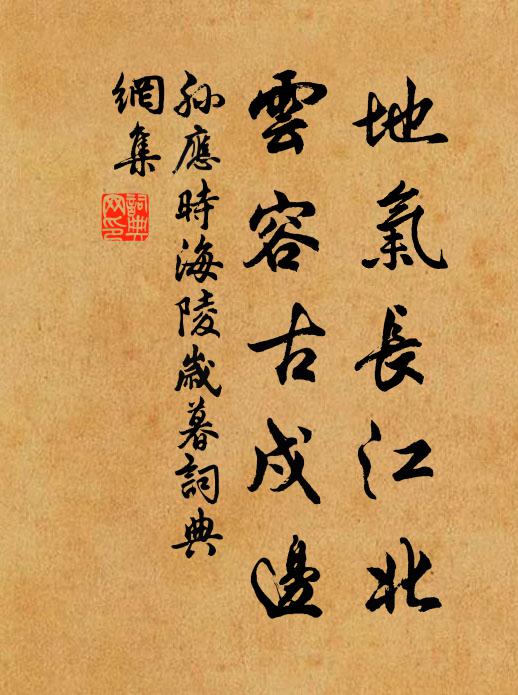 地氣長江北
雲容古戍邊
孫應時海陵歲暮詞典
網集
詞典
网印